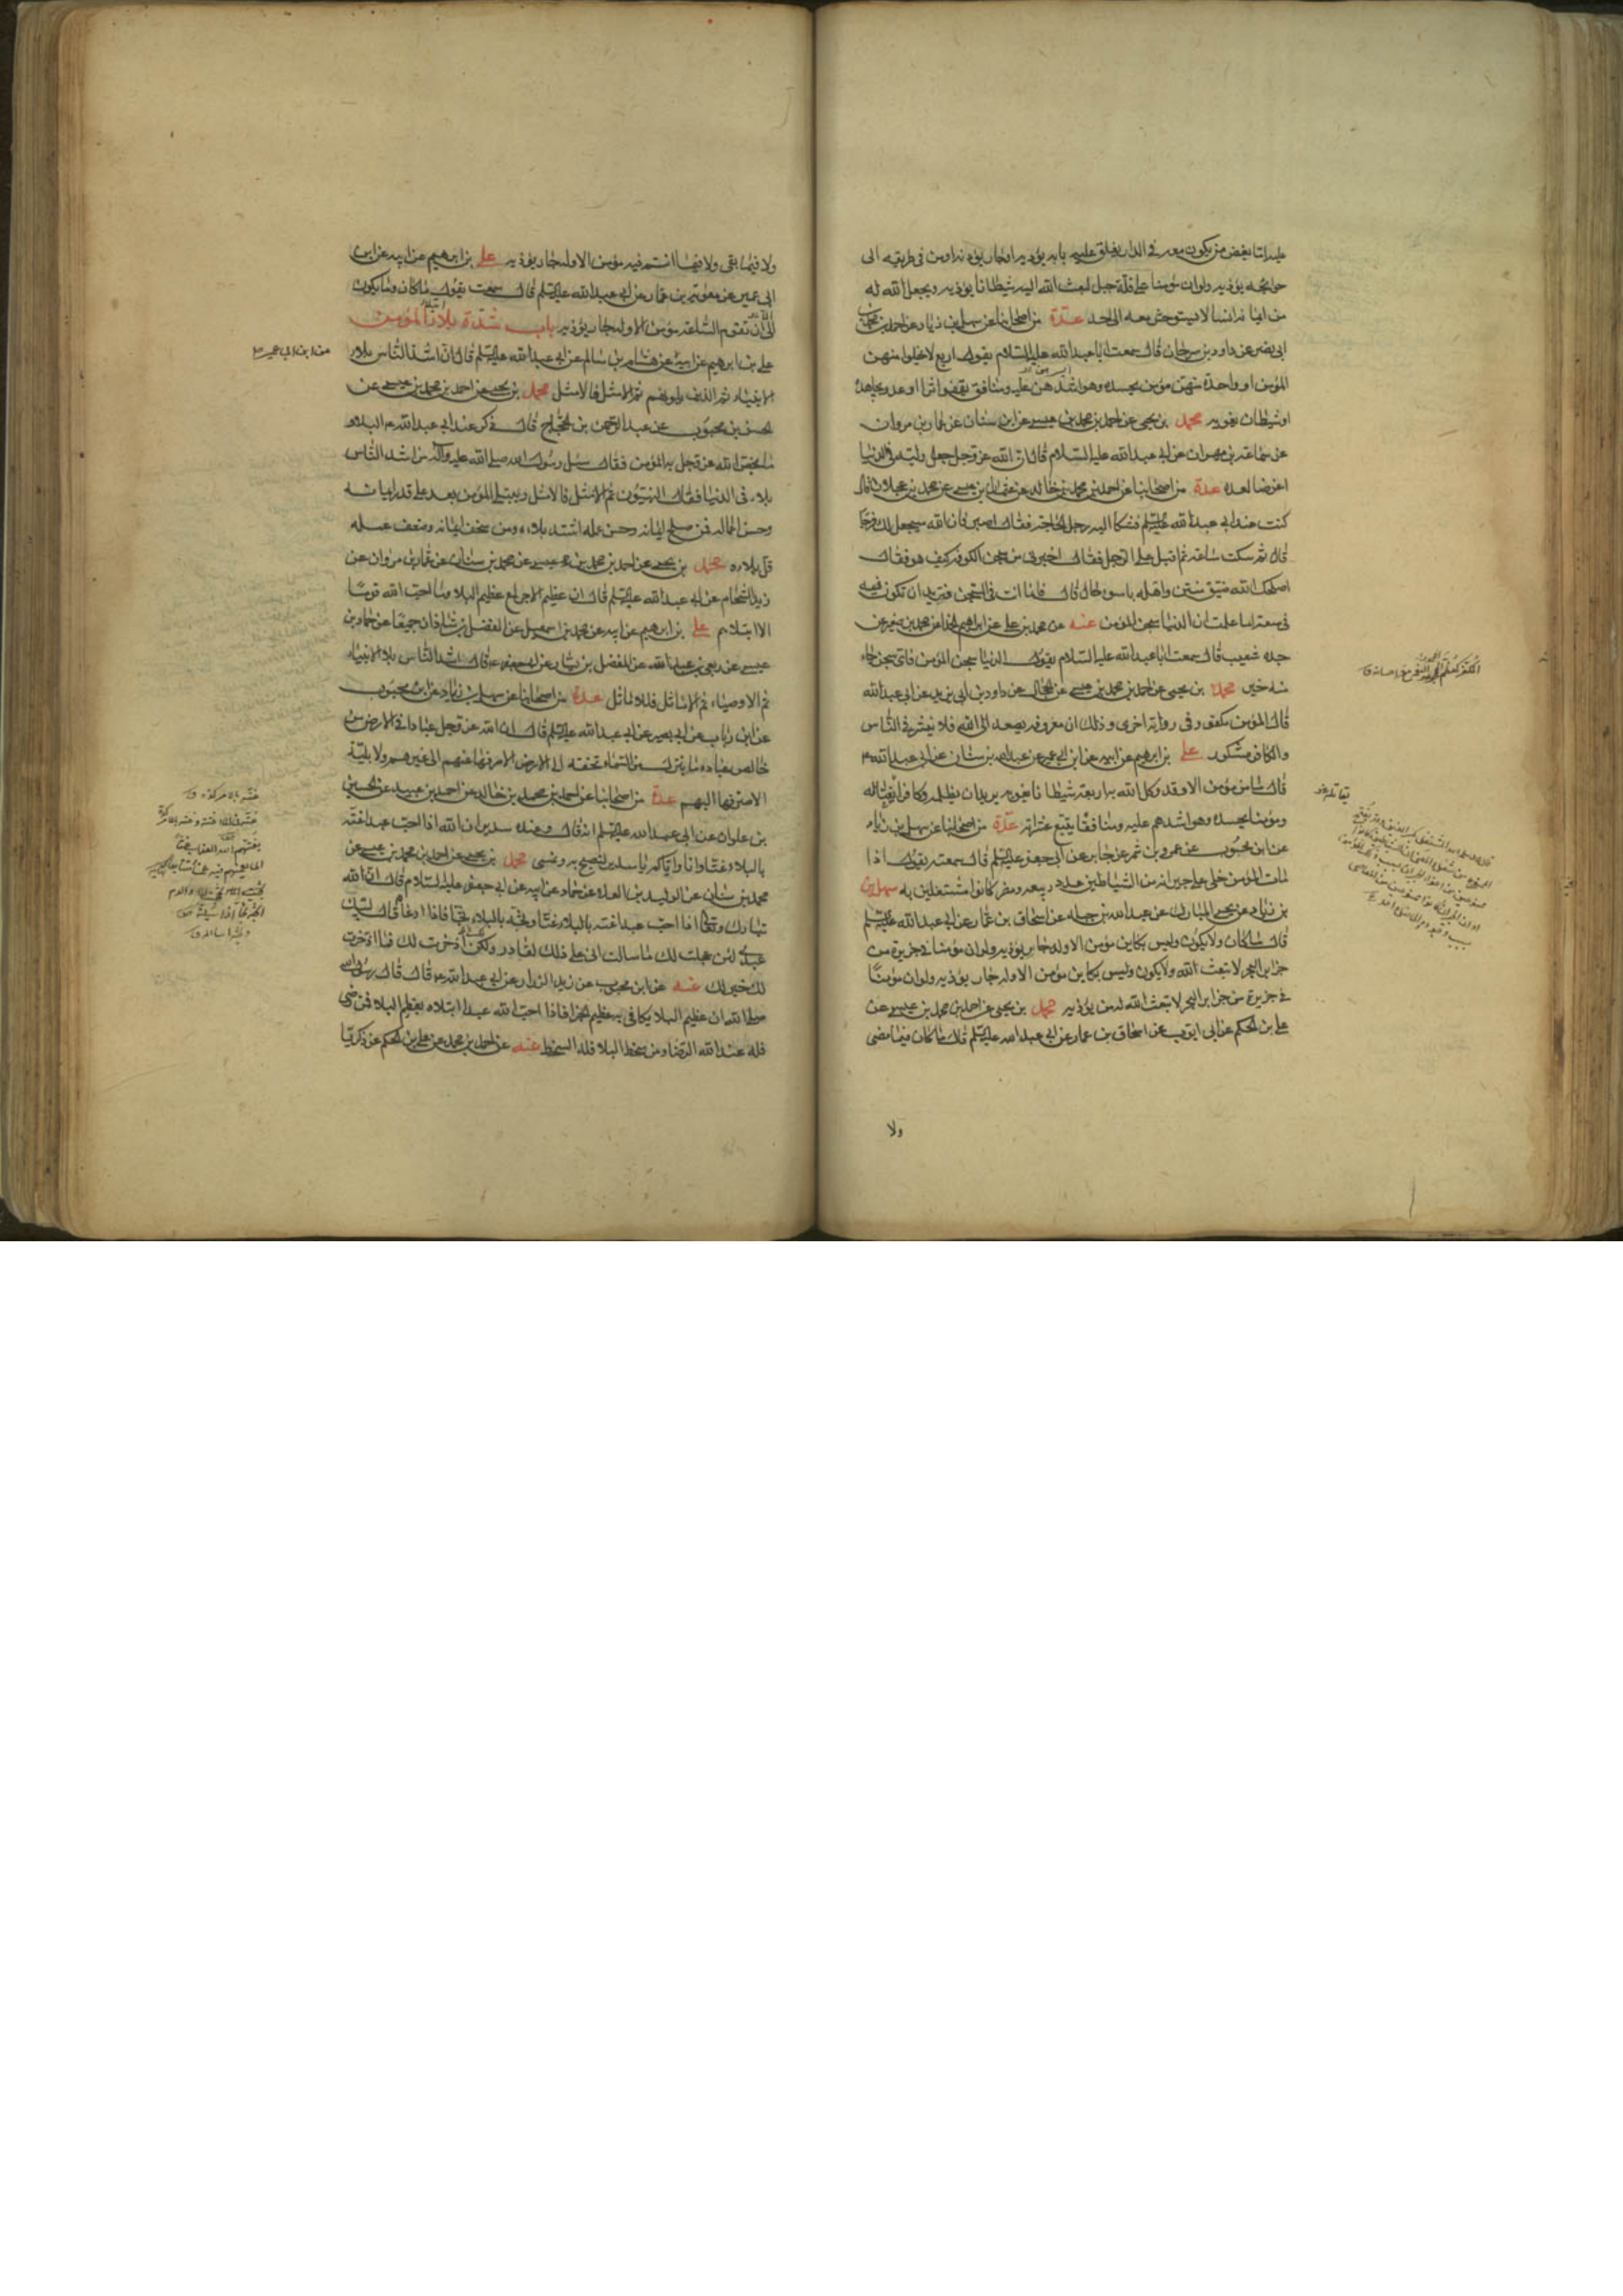 عليه اما بعض من يكون معه في الدار يغلق عليه بابه يؤذيه او جار يؤذيه او من في طريقه الى
حوائجه يؤذيه ولو ان مؤمنا على قلة جبل لبعث الله اليه شيطانا يؤذيه ويجعل الله له
من ايمانه انسا لا يستوحش معه الى احد عدة من اصحابنا عن سهل بن زياد عن احمد بن محمد بن
ابي نصر عن داود بن سرحان قال سمعت ابا عبد الله عليه السلام يقول اربع لا يخلوا منهن
المؤمن او واحدة منهن مؤمن يحسده وهو اشدهن عليه ومنافق يقفو اثرا او عدو يجاهده
او شيطان يغويه محمد بن يحيى عن احمد بن محمد بن عيسى عن ابن سنان عن عمار بن مروان
عن سماعة بن مهران عن ابي عبد الله عليه السلام قال ان الله عز وجل جعل وليه في الدنيا
غرضا لعدوه عدة من اصحابنا عن احمد بن محمد بن خالد عن عثمان بن عيسى عن محمد بن عجلان قال
كنت عند ابي عبد الله عليه السلم فشكا اليه رجل الحاجة فقال اصبر فان الله سيجعل لك فرجا
قال ثم سكت ساعة ثم اقبل على الرجل فقال اخبرني عن سجن الكوفة كيف هو فقال
اصلحك الله ضيق منتن واهله باسوء حال قال فانما انت في السجن فتريد ان تكون فيه
في سعة اما علمت ان الدنيا سجن المؤمن عنه عن محمد بن علي عن ابراهيم الحذا عن محمد بن صغير عن
جده شعيب قال سمعت ابا عبد الله عليه السلام يقول الدنيا سجن المؤمن فاى سجن جاء
منه خير محمد بن يحيى عن احمد بن محمد بن عيسى عن الحجال عن داود بن ابي يزيد عن ابي عبد الله
قال المؤمن مكفر وفي رواية اخرى وذلك ان معروفه يصعد الى الله فلا ينشر في الناس
والكافر مشكور علي بن ابرهيم عن ابيه عن ابن ابي عمير عن عبد الله بن سنان عن ابي عبد الله ع
قال ما من مؤمن الا وقد وكل الله به اربعة شيطانا يغويه يريد ان يضله وكافرا يغتاله
ومؤمنا يحسده وهو اشدهم عليه ومنافقا يتتبع عثراته عدة من اصحابنا عن سهل بن زياد
عن ابن محبوب عن عمرو بن شمر عن جابر عن ابي جعفر عليه السلم قال سمعته يقول اذا
مات المؤمن خلى على جيرانه من الشياطين عدد ربيعة ومضر كانوا مشتغلين به سهل بن
بن زياد عن يحيى المبارك عن عبد الله بن جبلة عن اسحاق بن عمار عن ابي عبد الله عليه السلم
قال ما كان ولا يكون وليس بكاين مؤمن الا وله جار يؤذيه ولو ان مؤمنا في جزيرة من
جزاير البحر لابتعث الله ولا يكون وليس بكاين مؤمن الا وله جار يؤذيه ولو ان مؤمنا
في جزيرة من جزاير البحر لابتعث الله له من يؤذيه محمد بن يحيى عن احمد بن محمد بن عيسى عن
علي بن الحكم عن ابي ايوب عن اسحاق بن عمار عن ابي عبد الله عليه السلم قال ما كان فيما مضى
ولا
ولا فيما بقى ولا فيما انتم فيه مؤمن الا وله جار يؤذيه علي بن ابرهيم عن ابيه عن ابن
ابي عمير عن معوية بن عمار عن ابي عبد الله عليه السلم قال سمعت يقول ما كان وما يكون
الى ان تقوم الساعة مؤمن الا وله جار يؤذيه باب شدة ابتلاء المؤمن
علي بن ابرهيم عن ابيه عن هشام بن سالم عن ابي عبد الله عليه السلم قال ان اشد الناس بلاء
من ابن ابي عمير
الانبياء ثم الذين يلونهم ثم الامثل فالامثل محمد بن يحيى عن احمد بن محمد بن عيسى عن
لحسن بن محبوب عن عبد الرحمن بن الحجاج قال ذكر عند ابي عبد الله ع البلاء
ما يخص الله عز وجل به المؤمن فقال سئل رسول الله صلى الله عليه وآله من اشد الناس
بلاء في الدنيا فقال النبيون ثم الامثل فالامثل ويبتلى المؤمن بعد على قدر ايمانه
وحسن اعماله فمن صلح ايمانه وحسن عمله اشتد بلاءه ومن سخف ايمانه وضعف عمله
قل بلاءه محمد بن يحيى عن احمد بن محمد بن عيسى عن محمد بن سنان عن عمار بن مروان عن
زيد الشحام عن ابي عبد الله عليه السلم قال ان عظيم الاجر لمع عظيم البلاء وما احب الله قوما
الا ابتلاهم علي بن ابرهيم عن ابيه عن محمد بن اسمعيل عن الفضل بن شاذان جميعا عن حماد بن
عيسى عن ربعي بن عبد الله عن الفضيل بن يسار عن ابي جعفر ع قال اشد الناس بلاء الانبياء
ثم الاوصياء ثم الاماثل فالاماثل عدة من اصحابنا عن سهل بن زياد عن ابن محبوب
عن ابن رياب عن ابي بصير عن ابي عبد الله عليه السلم قال ان الله عز وجل عبادا في الارض من
خالص عباده ما ينزل من السماء تحفة الى الارض الا صرفها عنهم الى غيرهم ولا بلية
الا صرفها اليهم عدة من اصحابنا عن احمد بن محمد بن خالد عن احمد بن عبيد عن الحسين
بن علوان عن ابي عبد الله عليه السلم انه قال وعنده سدير ان الله اذا احب عبدا غته
بالبلاء غتا وانا واياكم يا سدير لنصبح به ونمسى محمد بن يحيى عن احمد بن محمد بن عيسى عن
محمد بن سنان عن الوليد بن العلاء عن حماد عن ابيه عن ابي جعفر عليه السلام قال ان الله
تبارك وتعالى اذا احب عبدا غته بالبلاء غتا وثجه بالبلاء ثجا فاذا دعاه قال لبيك
عبدي لئن عجلت لك ما سالت انى على ذلك لقادر ولكن ادخرت لك فما ادخرت
لك خير لك عنه عن ابن محبوب عن زيد الزراد عن ابي عبد الله ع قال قال رسول الله
صلى الله ان عظيم البلاء يكافى به عظيم الجزا فاذا احب الله عبدا ابتلاه بعظيم البلاء فمن رضى
فله عند الله الرضا ومن سخط البلا فله السخط عنه عن احمد بن محمد عن علي بن الحكم عن زكريا